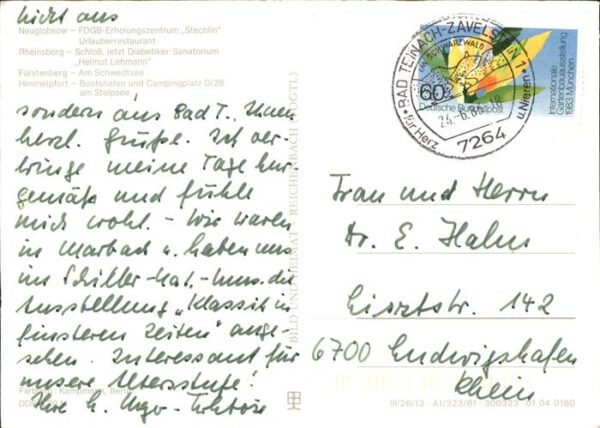 Nicht aus
Neuglobsow – FDGB-Erholungszentrum „Stechlin"
Urlauberrestaurant
Rheinsberg – Schloß, jetzt Diabetiker-Sanatorium
„Helmut Lehmann"
Fürstenberg – Am Schwedtsee
Himmelpfort – Bootshafen und Campingplatz D/28
am Stolpsee
sondern aus Bad T. Ihnen
herzl. Grüße. Ich ver-
bringe meine Tage kur-
gemäß und fühle
mich wohl. – Wir waren
in Marbach u. haben uns
im Schiller-Nat.-Mus. die
Ausstellung „Klassik in
finsteren Zeiten" ange-
sehen. Interessant für
unsere Altersstufe!
Ihre
BILD UND HEIMAT REICHENBACH (VOGTL)
BAD TEINACH-ZAVELSTEIN 1
SCHWARZWALD
für Herz
u. Nieren
7264
60
Deutsche Bundespost
Internationale
Gartenbauausstellung
1983 München
Frau und Herrn
Dr. E. Hahn
Lisztstr. 142
6700 Ludwigshafen
Rhein
III/26/13 · A1/323/81 300323 01 04 0160